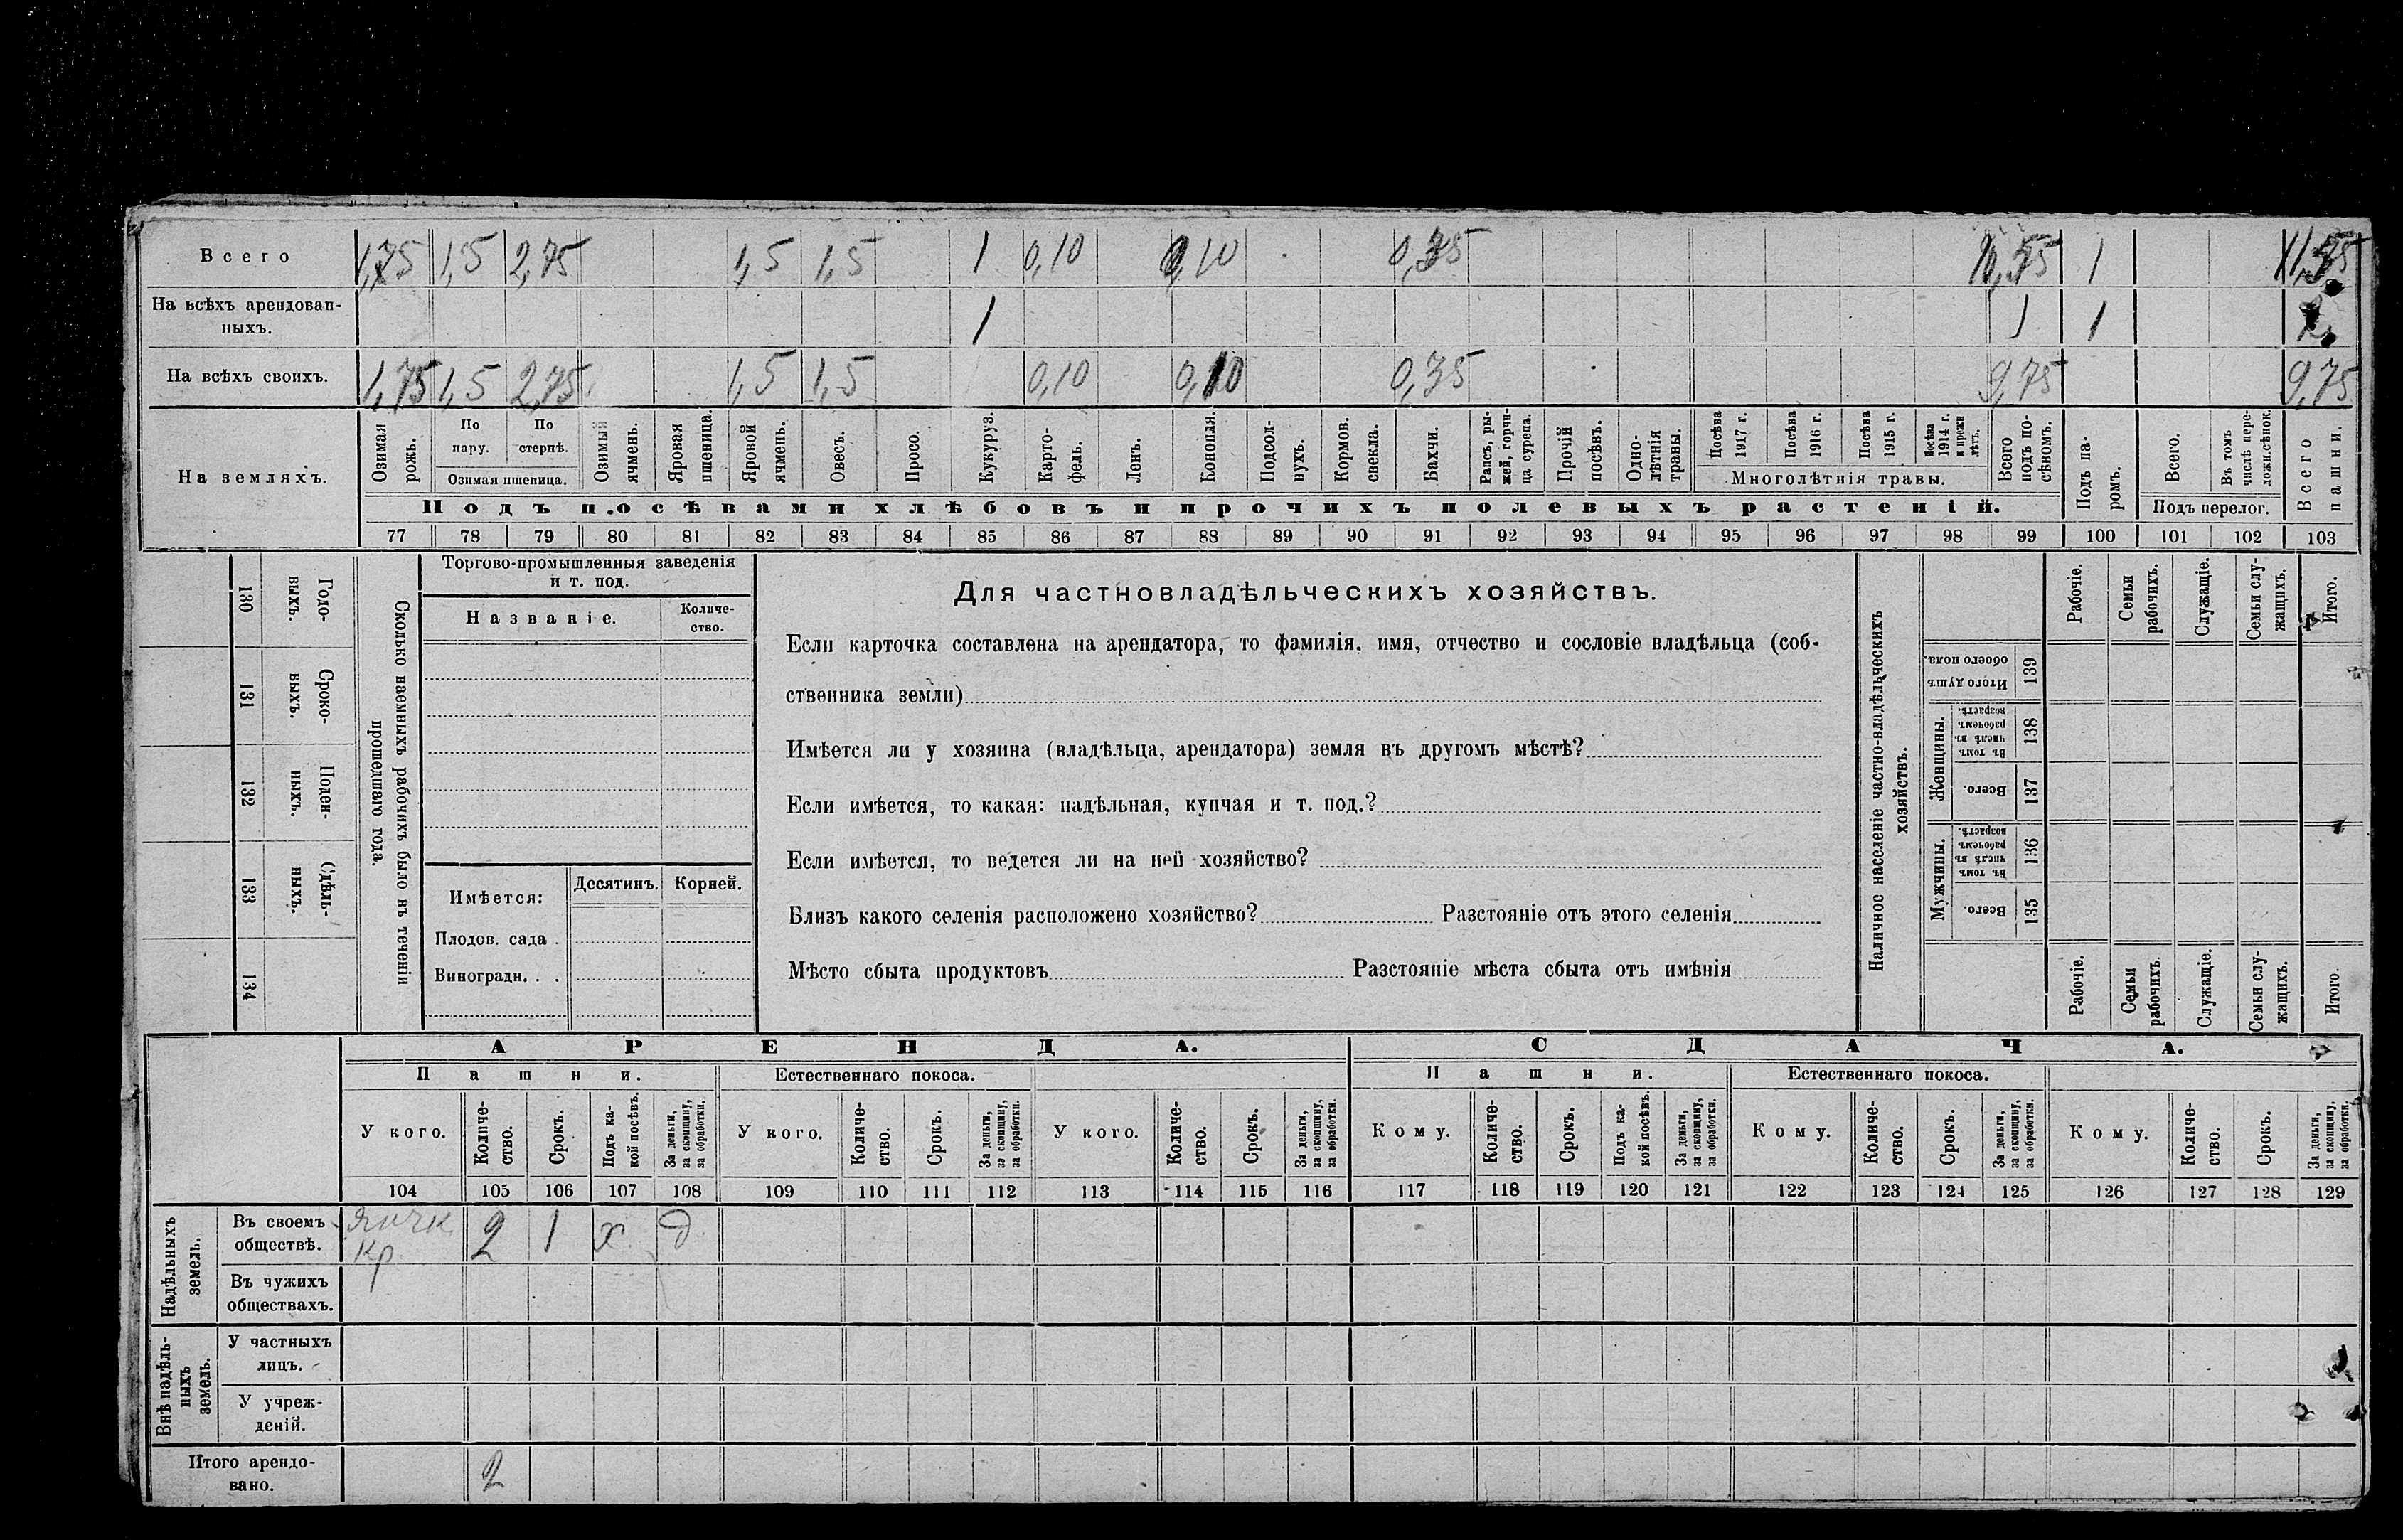 Всего 1,75 1,5 2,75 1,5 1,5 1 0,10 0,10 0,35 1
На всѣхъ арендован-
ныхъ. 1 1 1 2
На всѣхъ своихъ. 1,75 1,5 2,75 1,5 1,5 0,10 0,10 0,35 9,75 9,75
На земляхъ.
Озимая рожь.
По пару.
По стернѣ.
Озимая пшеница.
Озимый ячмень.
Яровая пшеница.
Яровой ячмень.
Овесъ.
Просо.
Кукуруз.
Карто-
фель.
Ленъ.
Конопля.
Подсол-
нухъ.
Кормов. свекла.
Бахчи.
Рапсъ, ры-
жей, горчи-
ца сурепа.
Прочій посѣвъ.
Одно-
лѣтнія травы.
Посѣва 1917 г.
Посѣва 1916 г.
Посѣва 1915 г.
Посѣва 1914 г. и прежн лѣтъ.
Многолѣтнія травы.
Всего подъ по-
сѣвомъ.
Подъ па-
ромъ.
Всего.
Въ томъ числѣ пере-
ложн.сѣнок.
Подъ перелог.
Всего пашни.
Подъ посѣвами хлѣбовъ и прочихъ полевыхъ растеній.
77 78 79 80 81 82 83 84 85 86 87 88 89 90 91 92 93 94 95 96 97 98 99 100 101 102 103
130 Годо-
выхъ.
131 Сроко-
выхъ.
132 Поден-
ныхъ.
133 Сдѣль-
ныхъ.
134
Сколько наемныхъ рабочихъ было въ теченіи
прошедшаго года.
Торгово-промышленныя заведенія
и т. под.
Названіе.
Количе-
ство.
Имѣется: Десятинъ. Корней.
Плодов. сада .
Виноградн. . .
Для частновладѣльческихъ хозяйствъ.
Если карточка составлена на арендатора, то фамилія, имя, отчество и сословіе владѣльца (соб-
ственника земли)
Имѣется ли у хозяина (владѣльца, арендатора) земля въ другомъ мѣстѣ?
Если имѣется, то какая: надѣльная, купчая и т. под.?
Если имѣется, то ведется ли на ней хозяйство?
Близъ какого селенія расположено хозяйство? Разстояніе отъ этого селенія
Мѣсто сбыта продуктовъ Разстояніе мѣста сбыта отъ имѣнія
Наличное населеніе частно-владѣльческихъ
хозяйствъ.
Рабочіе.
Семьи рабочихъ.
Служащіе.
Семьи слу-
жащихъ.
Итого.
Итого душъ обоего пола. 139
Женщины.
Въ томъ числѣ въ рабочемъ возрастѣ. 138
Всего. 137
Мужчины.
Въ томъ числѣ въ рабочемъ возрастѣ. 136
Всего. 135
Рабочіе.
Семьи рабочихъ.
Служащіе.
Семьи слу-
жащихъ.
Итого.
АРЕНДА. СДАЧА.
Пашни. Естественнаго покоса. Пашни. Естественнаго покоса.
У кого.
Количе-
ство.
Срокъ.
Подъ ка-
кой посѣвъ.
За деньги, за скопщину, за обработки.
У кого.
Количе-
ство.
Срокъ.
За деньги, за скопщину, за обработки.
У кого.
Количе-
ство.
Срокъ.
За деньги, за скопщину, за обработки.
Кому.
Количе-
ство.
Срокъ.
Подъ ка-
кой посѣвъ.
За деньги, за скопщину, за обработки.
Кому.
Количе-
ство.
Срокъ.
За деньги, за скопщину, за обработки.
Кому.
Количе-
ство.
Срокъ.
За деньги, за скопщину, за обработки.
104 105 106 107 108 109 110 111 112 113 114 115 116 117 118 119 120 121 122 123 124 125 126 127 128 129
Надѣльныхъ земель.
Въ своемъ
обществѣ. кр. 2 1 х д
Въ чужихъ
обществахъ.
Внѣ надѣль-
ныхъ земель.
У частныхъ
лицъ.
У учреж-
деній.
Итого арендо-
вано. 2